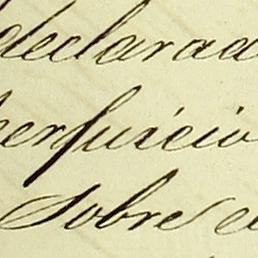 declarad
perjuicio
Sobre el